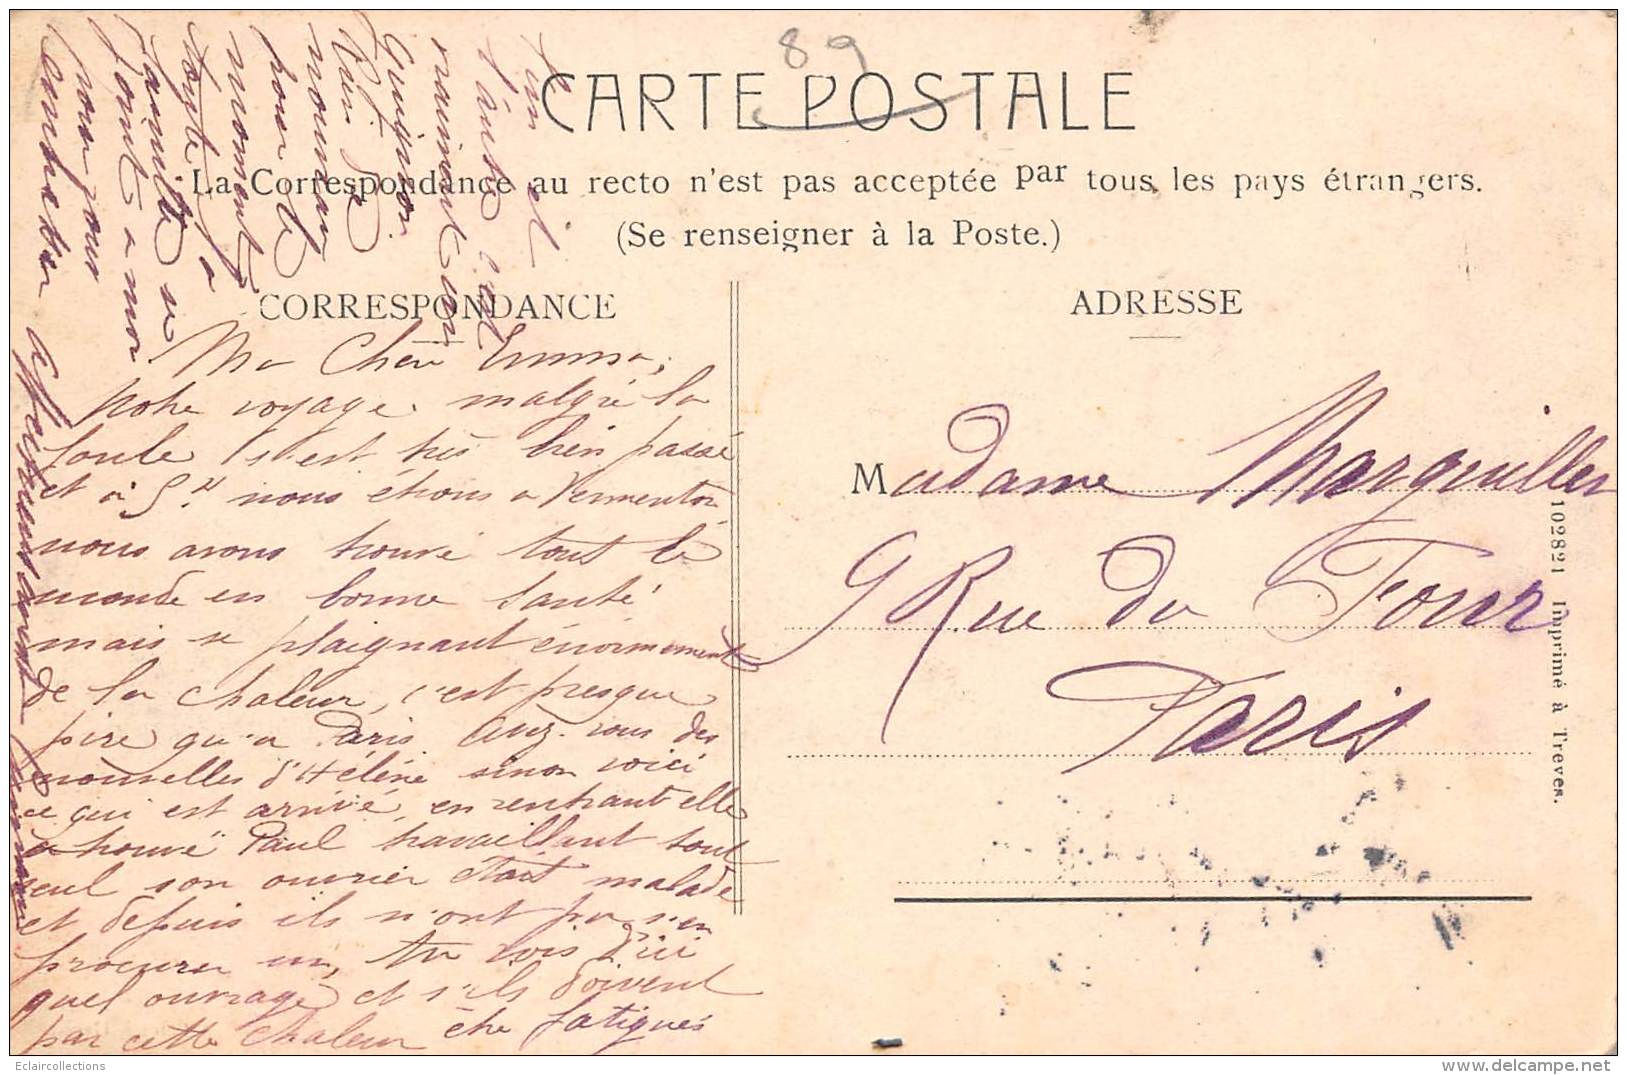 89
CARTE POSTALE
La Correspondance au recto n'est pas acceptée par tous les pays étrangers.
(Se renseigner à la Poste.)
CORRESPONDANCE
ADRESSE
Ma Chère Emma,
Notre voyage malgré la
foule s'est très bien passé
et à 5h nous étions a Vermenton
nous avons trouvé tout le
monde en bonne santé
mais se plaignant énormement
de la chaleur, c'est presque
pire qu'a Paris. Avez-vous des
nouvelles d'Hélène sinon voici
ce qui est arrivé, en rentrant elle
a trouvé Paul travaillant tout
seul son ouvrier était malade
et depuis ils n'ont pu s'en
procurer un, tu vois d'ici
quel ouvrage et s'ils doivent
par cette chaleur être fatigués
l'un et
l'autre c'est
vraiment avoir
Guignon.
Rien de
nouveau
pour le
moment
toute la
famille se
joint a moi
pour vous
embrasser affectueusement
Madame Marguillier
9 Rue du Four
Paris
102821 Imprimé à Trèves.
Eclaircollections
www.delcampe.net